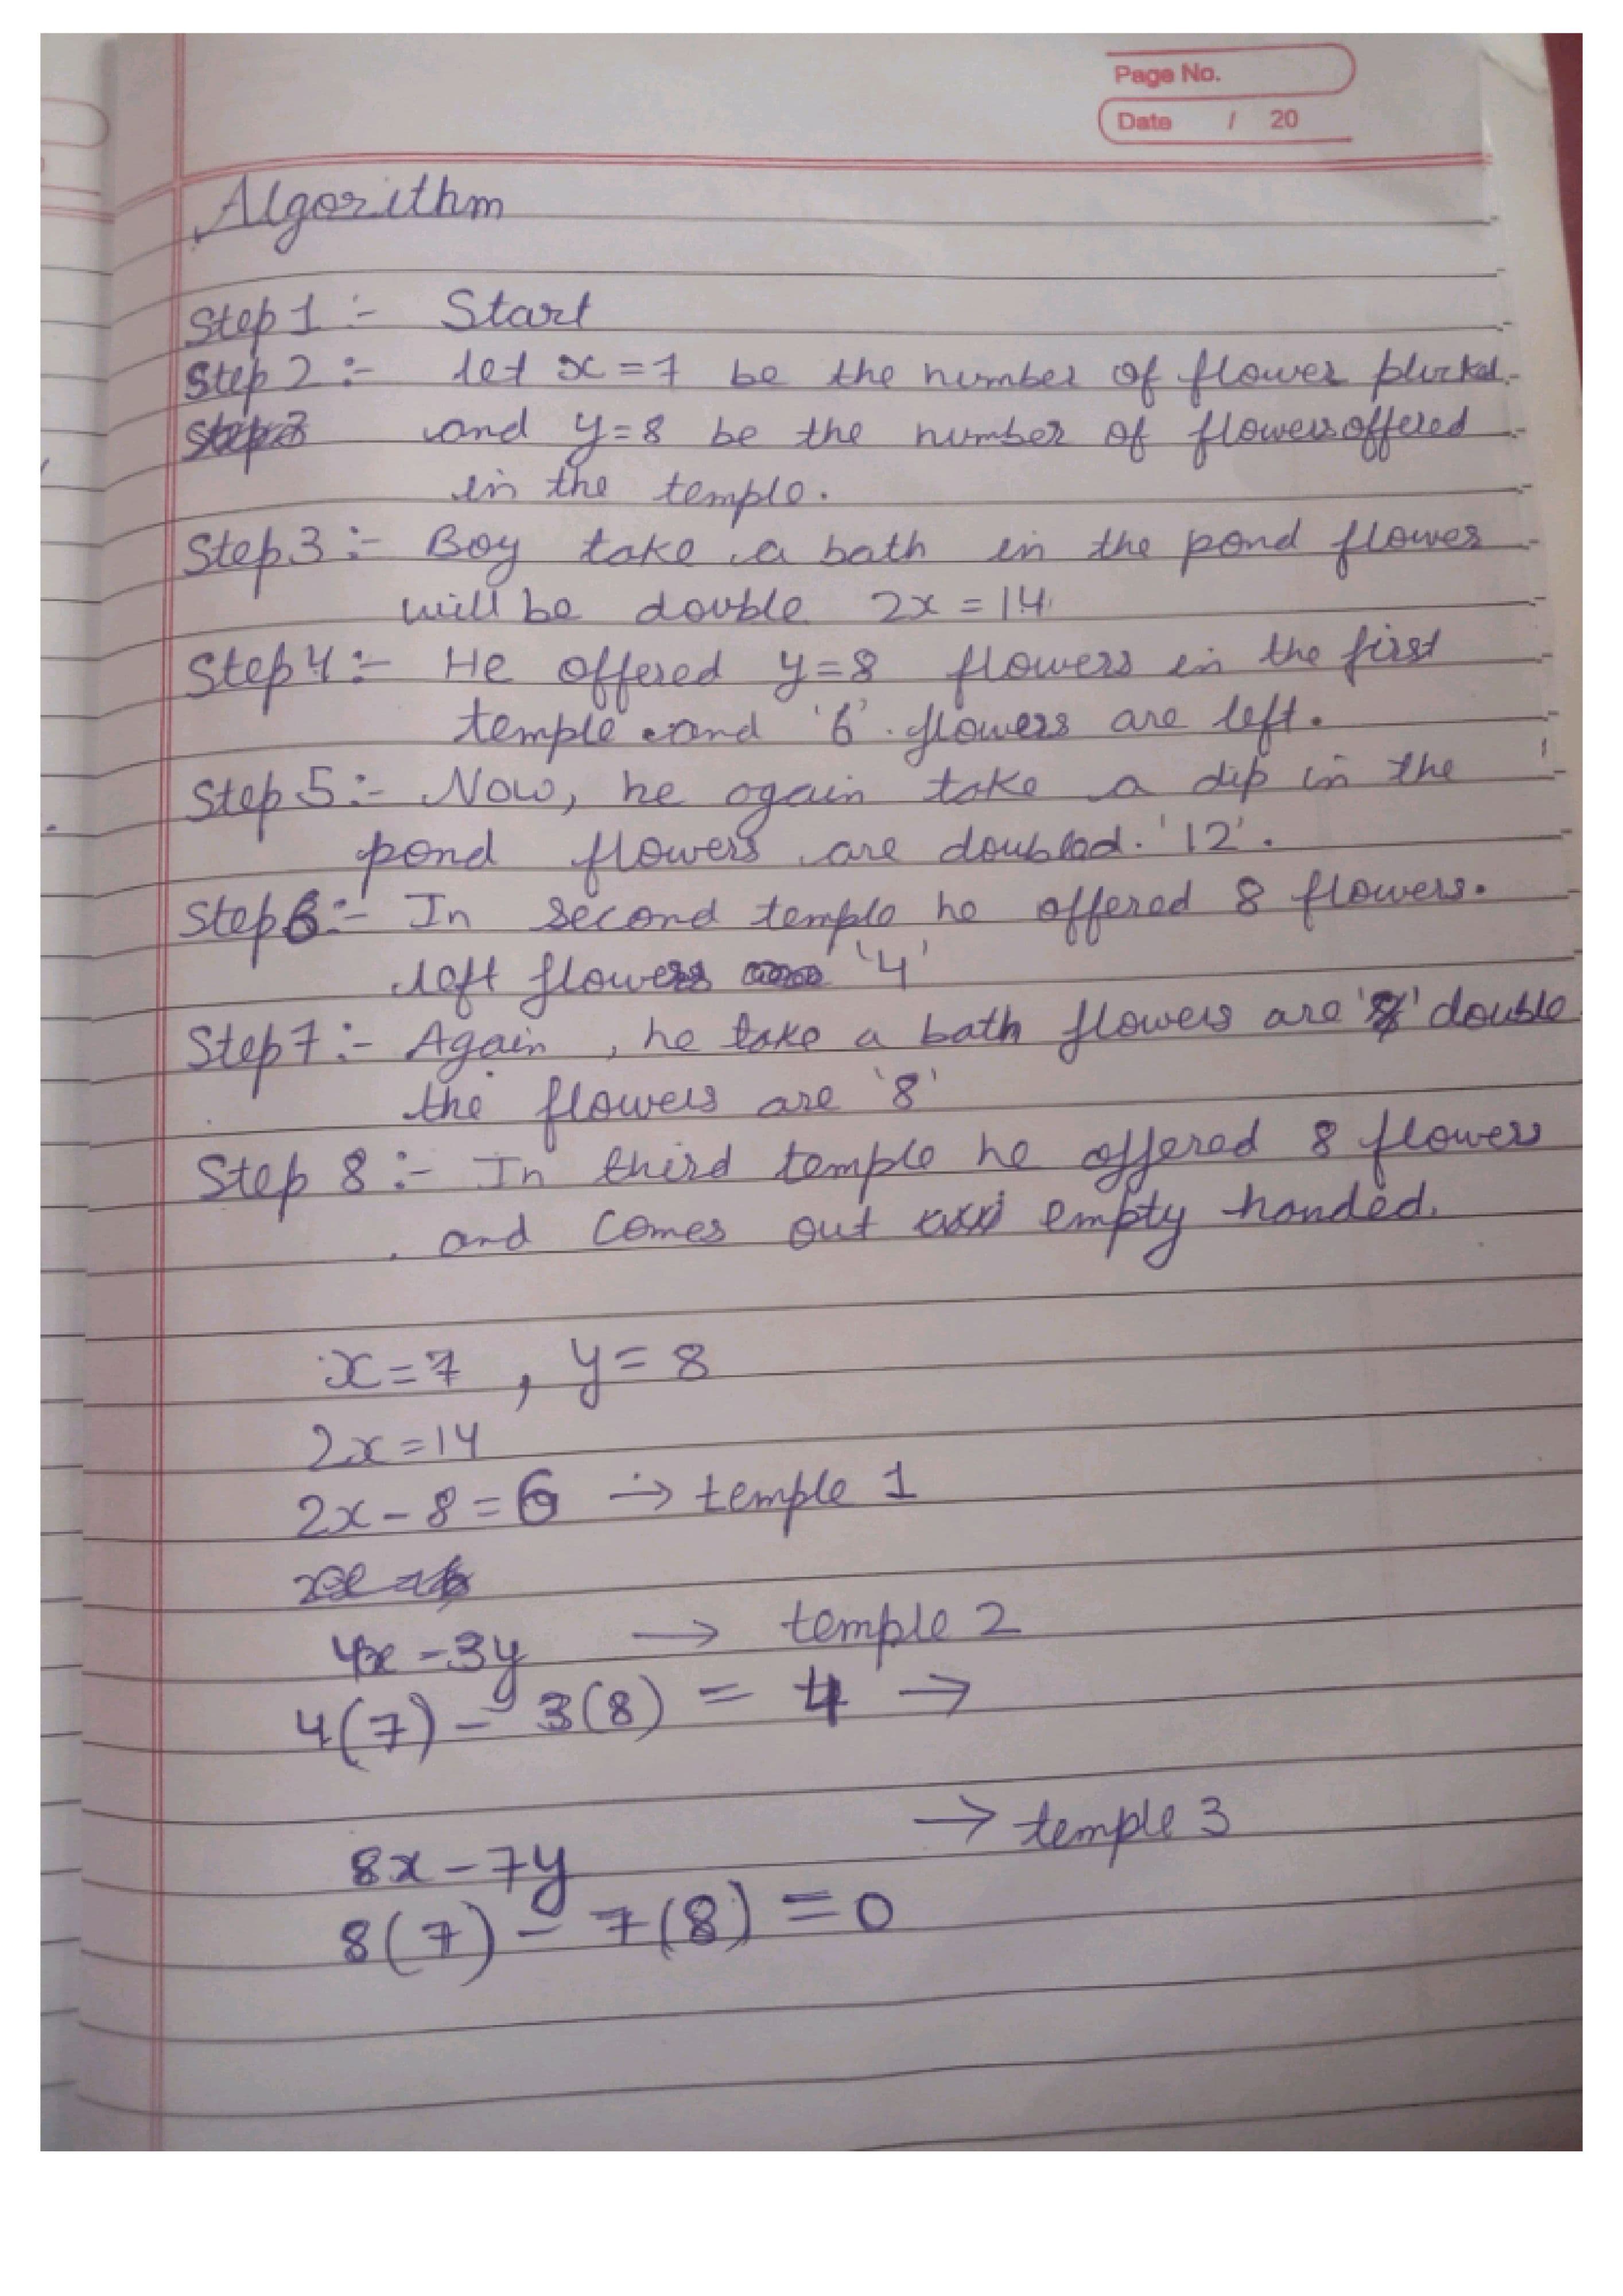 Page No.
Date / 20
Algorithm
Step 1 :- Start
Step 2 :- let x = 7 be the number of flower plucked.
and y = 8 be the number of flowers offered
in the temple.
Step 3 :- Boy take a bath in the pond flower
will be double 2x = 14
Step 4 :- He offered y = 8 flowers in the first
temple and '6' flowers are left.
Step 5 :- Now, he again take a dip in the
pond flowers are doubled. '12'.
Step 6 :- In second temple he offered 8 flowers.
left flowers '4'
Step 7 :- Again, he take a bath flowers are double
the flowers are '8'
Step 8 :- In third temple he offered 8 flowers
and comes out empty handed.
x = 7 , y = 8
2x = 14
2x - 8 = 6 → temple 1
4x - 3y → temple 2
4(7) - 3(8) = 4 →
→ temple 3
8x - 7y
8(7) - 7(8) = 0